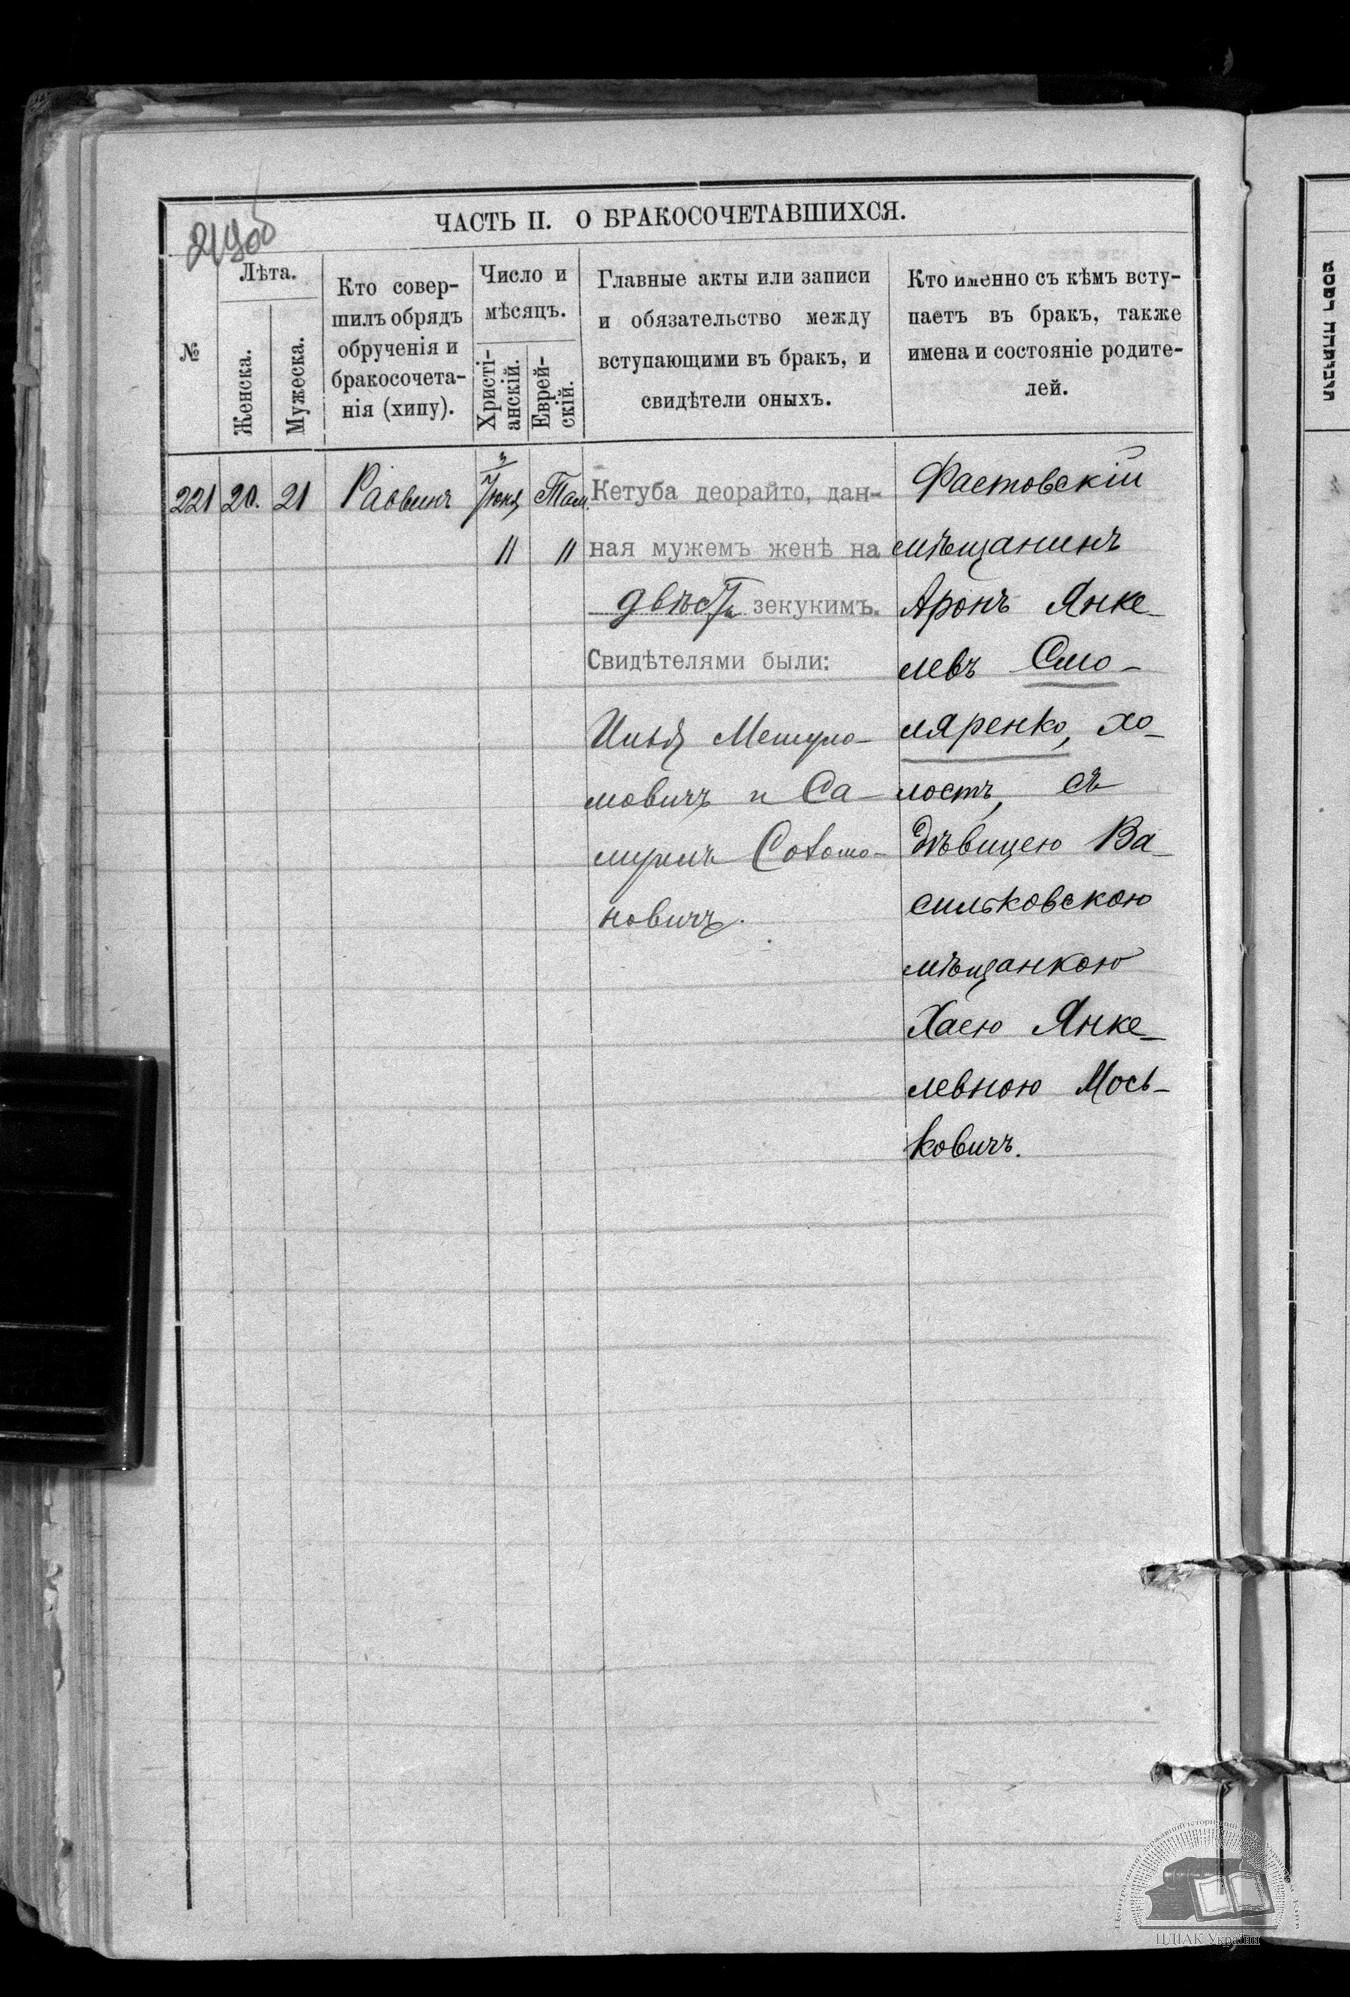 ЧАСТЬ II. О БРАКОСОЧЕТАВШИХСЯ.
№
Лѣта.
Женска.
Мужеска.
Кто совер-
шилъ обрядъ
обрученія и
бракосочета-
нія (хипу).
Число и
мѣсяцъ.
Христі-
анскій.
Еврей-
скій.
Главные акты или записи
и обязательство между
вступающими въ бракъ, и
свидѣтели оныхъ.
Кто именно съ кѣмъ всту-
паетъ въ бракъ, также
имена и состояніе родите-
лей.
221 20. 21 Раввинъ
Там.
11 11
Кетуба деорайто, дан-
ная мужемъ женѣ на
двѣсти зекукимъ.
Свидѣтелями были:
мовичъ и Са-
муилъ Соломо-
новичъ.
Фастовскій
мѣщанинъ
Аронъ Янке-
левъ Смо-
ляренко, хо-
лостъ, съ
дѣвицею Ва-
сильковскою
мѣщанкою
Хаею Янке-
левною Мось-
ковичъ.
ЦДІАК України